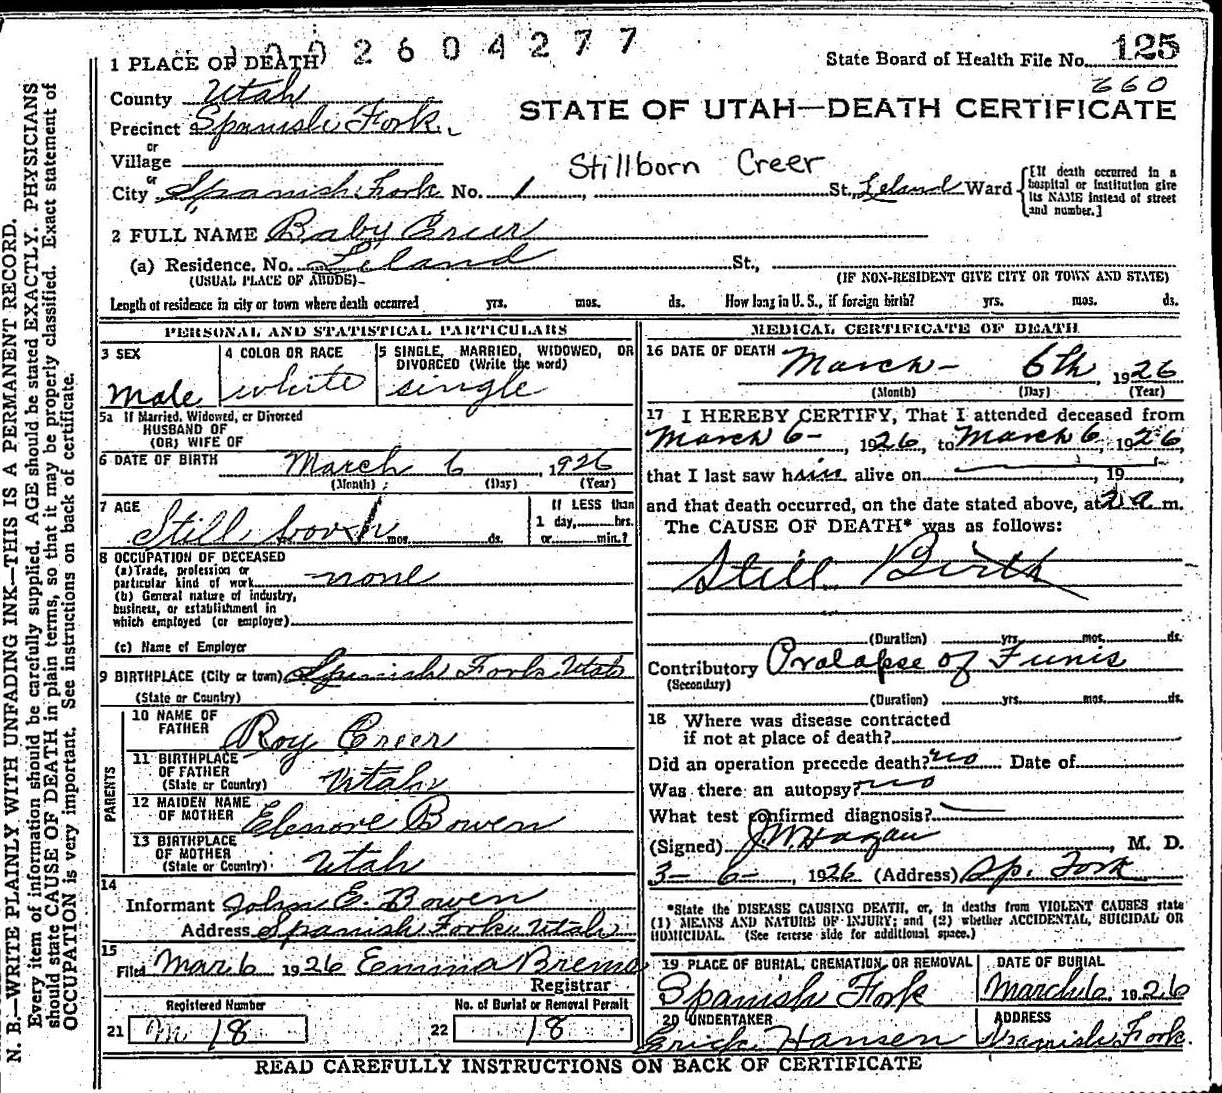 1002604277
1 PLACE OF DEATH
State Board of Health File No. 125
County Utah
660
STATE OF UTAH—DEATH CERTIFICATE
Precinct Spanish Fork
or
Village
Stillborn Creer
or
City Spanish Fork No. 1, St, Leland Ward
[If death occurred in a hospital or institution give its NAME instead of street and number.]
2 FULL NAME Baby Creer
(a) Residence. No. Leland St.,
(USUAL PLACE OF ABODE) (IF NON-RESIDENT GIVE CITY OR TOWN AND STATE)
Length of residence in city or town where death occurred yrs. mos. ds. How long in U. S., if foreign birth? yrs. mos. ds.
PERSONAL AND STATISTICAL PARTICULARS
3 SEX
Male
4 COLOR OR RACE
white
5 SINGLE, MARRIED, WIDOWED, OR
DIVORCED (Write the word)
single
5a If Married, Widowed, or Divorced
HUSBAND OF
(OR) WIFE OF
6 DATE OF BIRTH March 6, 1926
(Month) (Day) (Year)
7 AGE
Still born mos. ds.
If LESS than
1 day, hrs.
or min.?
8 OCCUPATION OF DECEASED
(a) Trade, profession or
particular kind of work none
(b) General nature of industry,
business, or establishment in
which employed (or employer)
(c) Name of Employer
9 BIRTHPLACE (City or town) Spanish Fork Utah
(State or Country)
PARENTS
10 NAME OF
FATHER Roy Creer
11 BIRTHPLACE
OF FATHER
(State or Country) Utah
12 MAIDEN NAME
OF MOTHER Elenore Bowen
13 BIRTHPLACE
OF MOTHER
(State or Country) Utah
14
Informant John E. Bowen
Address Spanish Fork Utah
15
Filed Mar 6 1926 Emma Breme
Registrar
Registered Number
21 M 18
No. of Burial or Removal Permit
22 18
MEDICAL CERTIFICATE OF DEATH
16 DATE OF DEATH March - 6th, 1926
(Month) (Day) (Year)
17 I HEREBY CERTIFY, That I attended deceased from
March 6-, 1926, to March 6, 1926,
that I last saw him alive on, 19,
and that death occurred, on the date stated above, at 2 a m.
The CAUSE OF DEATH* was as follows:
Still Birth
(Duration) yrs. mos. ds.
Contributory Prolapse of Funis
(Secondary)
(Duration) yrs. mos. ds.
18 Where was disease contracted
if not at place of death?
Did an operation precede death? no Date of
Was there an autopsy? no
What test confirmed diagnosis?
(Signed) J.W. Hagan, M. D.
3-6-, 1926 (Address) Sp. Fork
*State the DISEASE CAUSING DEATH, or, in deaths from VIOLENT CAUSES state
(1) MEANS AND NATURE OF INJURY; and (2) whether ACCIDENTAL, SUICIDAL OR
HOMICIDAL. (See reverse side for additional space.)
19 PLACE OF BURIAL, CREMATION, OR REMOVAL
Spanish Fork
DATE OF BURIAL
March 6 1926
20 UNDERTAKER
Erick Hansen
ADDRESS
Spanish Fork.
READ CAREFULLY INSTRUCTIONS ON BACK OF CERTIFICATE
N. B.—WRITE PLAINLY WITH UNFADING INK—THIS IS A PERMANENT RECORD.
Every item of information should be carefully supplied. AGE should be stated EXACTLY. PHYSICIANS
should state CAUSE OF DEATH in plain terms, so that it may be properly classified. Exact statement of
OCCUPATION is very important. See instructions on back of certificate.